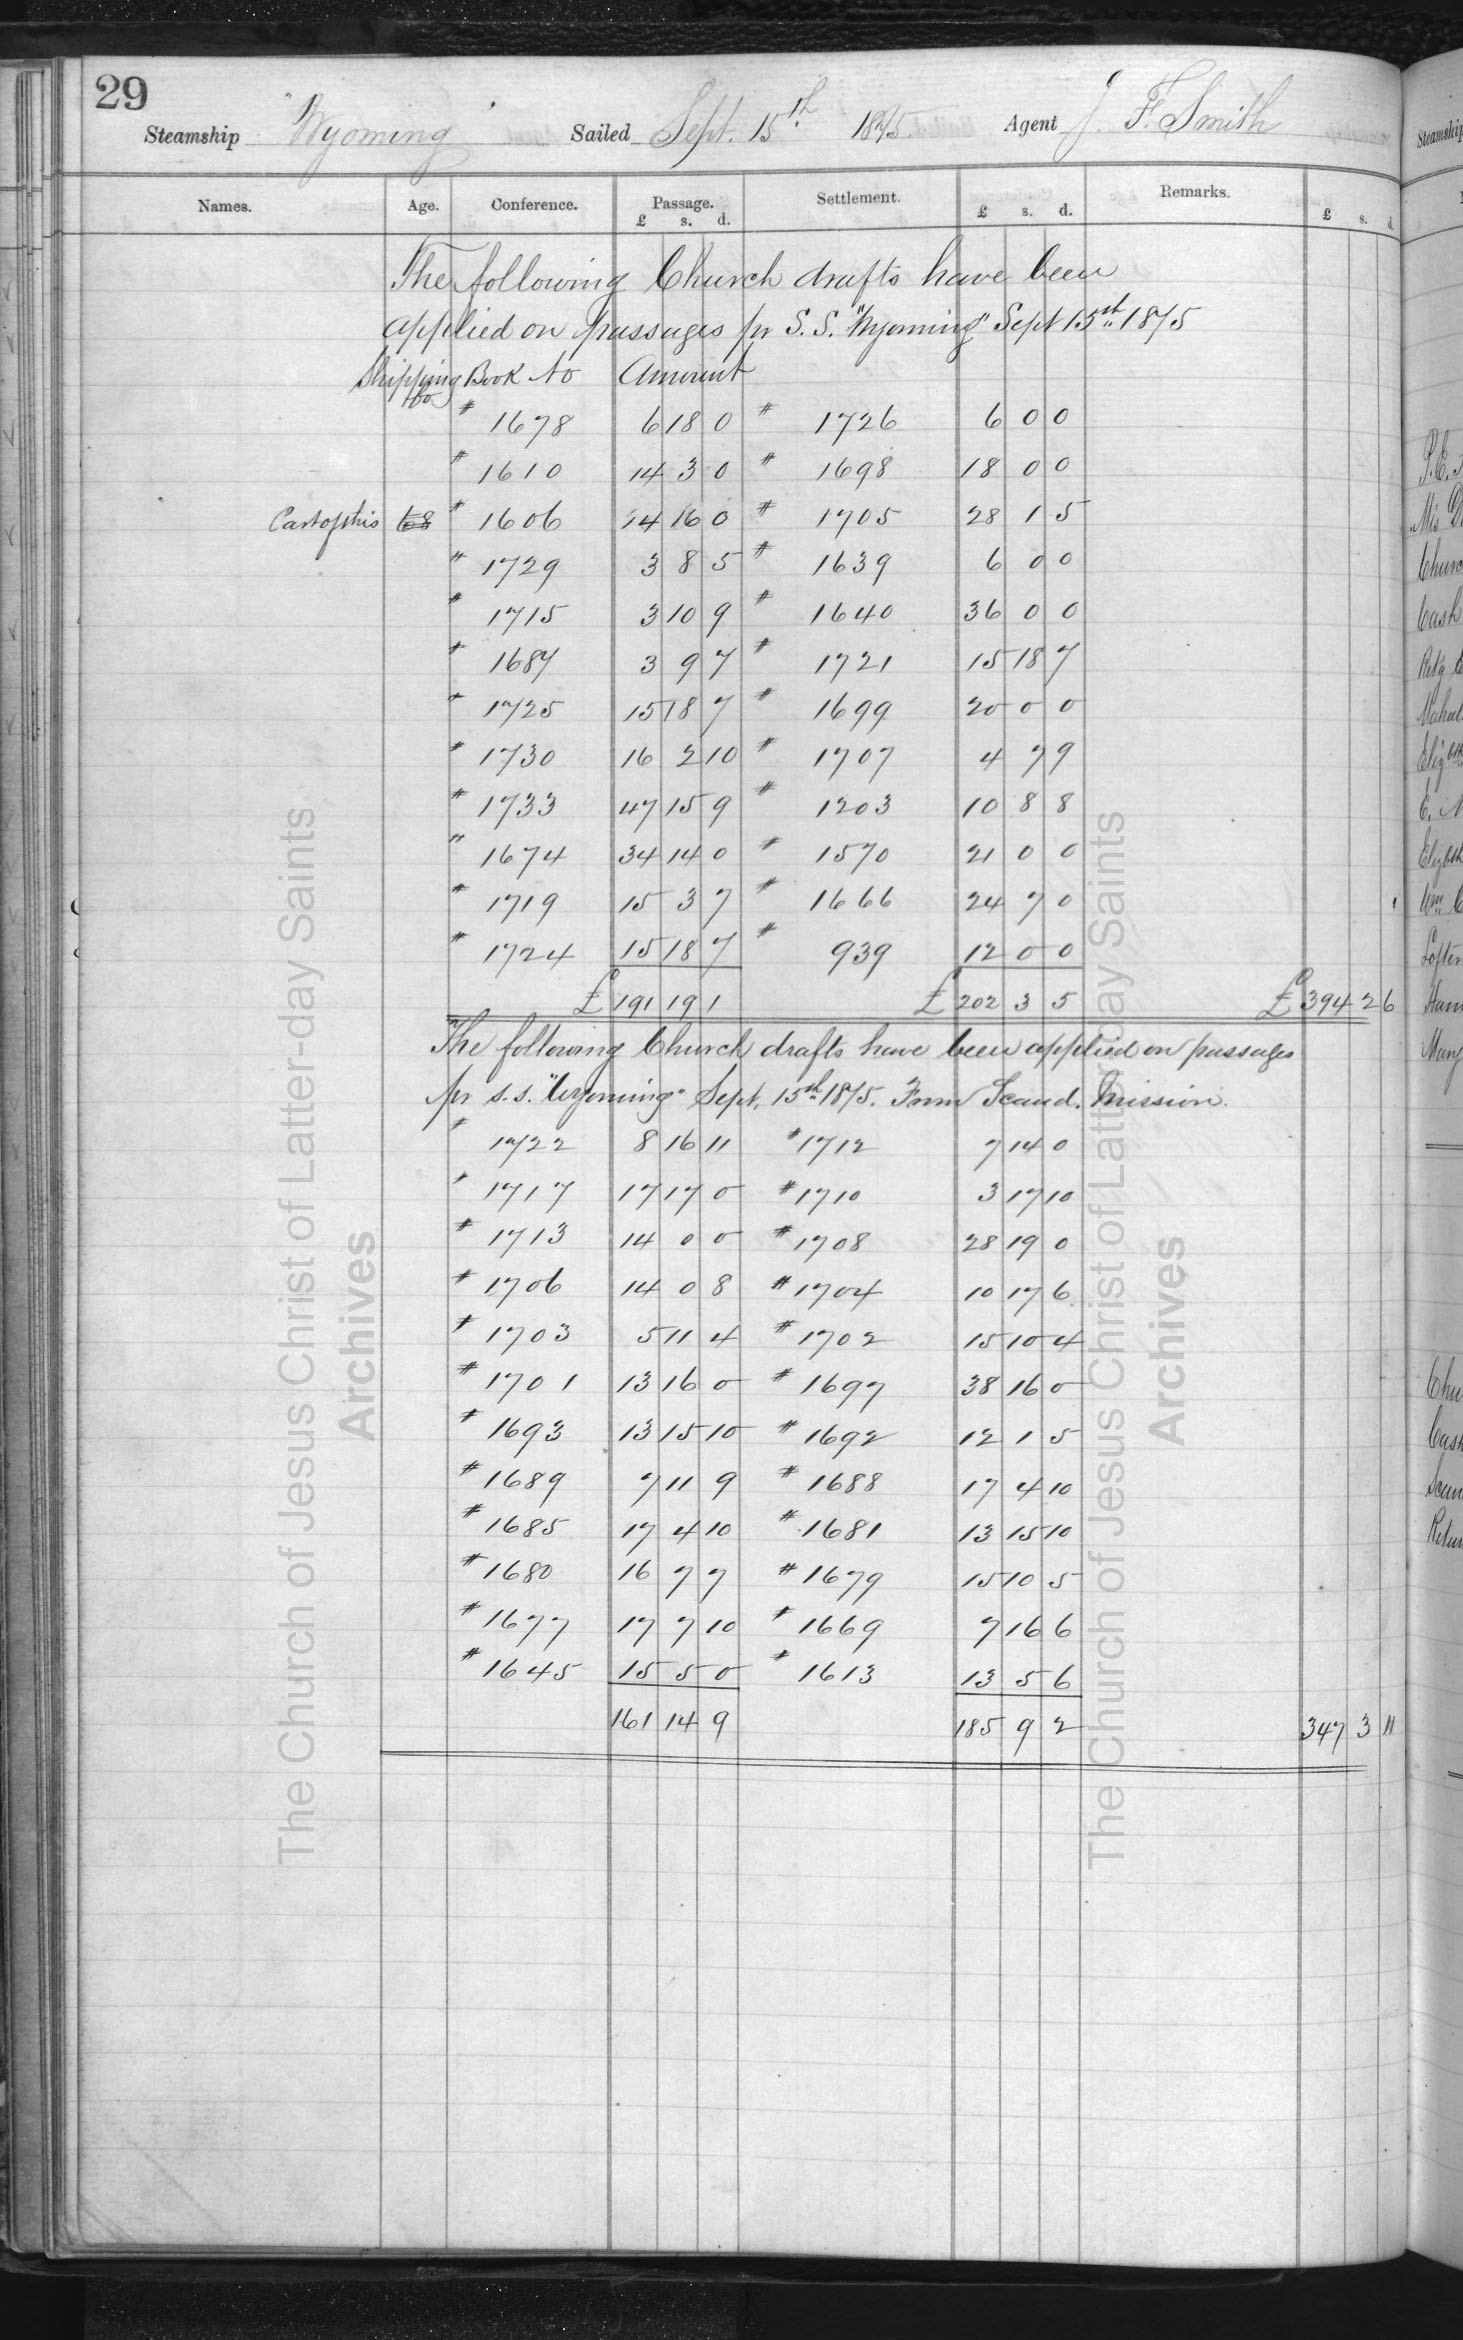 29
Steamship "Wyoming" Sailed Sept. 15th 1875 Agent J. F. Smith
Names. Age. Conference. Passage. Settlement. Remarks.
£ s. d. £ s. d. £ s. d.
The following Church drafts have been
applied on passages pr S.S. "Wyoming" Sept 15th 1875
Shipping Book No Amount
# 1678 6 18 0 # 1726 6 0 0
# 1610 14 3 0 # 1698 18 0 0
68 # 1606 14 16 0 # 1705 28 1 5
" 1729 3 8 5 # 1639 6 0 0
# 1715 3 10 9 # 1640 36 0 0
# 1687 3 9 7 # 1721 15 18 7
# 1725 15 18 7 # 1699 20 0 0
# 1730 16 2 10 # 1707 4 7 9
# 1733 47 15 9 # 1203 10 8 8
" 1674 34 14 0 # 1570 21 0 0
# 1719 15 3 7 # 1666 24 7 0
# 1724 15 18 7 # 939 12 0 0
£ 191 19 1 £ 202 3 5 £ 394 2 6
The following Church drafts have been applied on passages
pr s.s. "Wyoming" Sept. 15th 1875. From Scand. Mission.
# 1722 8 16 11 # 1712 7 14 0
" 1717 17 17 0 # 1710 3 17 10
# 1713 14 0 0 # 1708 28 19 0
# 1706 14 0 8 # 1704 10 17 6
# 1703 5 11 4 # 1702 15 10 4
# 1701 13 16 0 # 1697 38 16 0
# 1693 13 15 10 # 1692 12 1 5
# 1689 7 11 9 # 1688 17 4 10
# 1685 17 4 10 # 1681 13 15 10
# 1680 16 7 7 # 1679 15 10 5
# 1677 17 7 10 # 1669 7 16 6
# 1645 15 5 0 # 1613 13 5 6
161 14 9 185 9 2 347 3 11
The Church of Jesus Christ of Latter-day Saints
Archives
The Church of Jesus Christ of Latter-day Saints
Archives
Steamship
Church
Cash